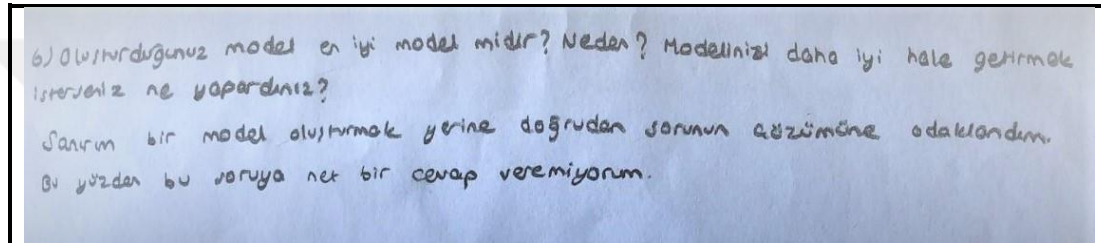 6) Oluşturduğunuz model en iyi model midir? Neden? Modelinizi daha iyi hale getirmek
isterseniz ne yapardınız?
Sanırım bir model oluşturmak yerine doğrudan sorunun çözümüne odaklandım.
Bu yüzden bu soruya net bir cevap veremiyorum.